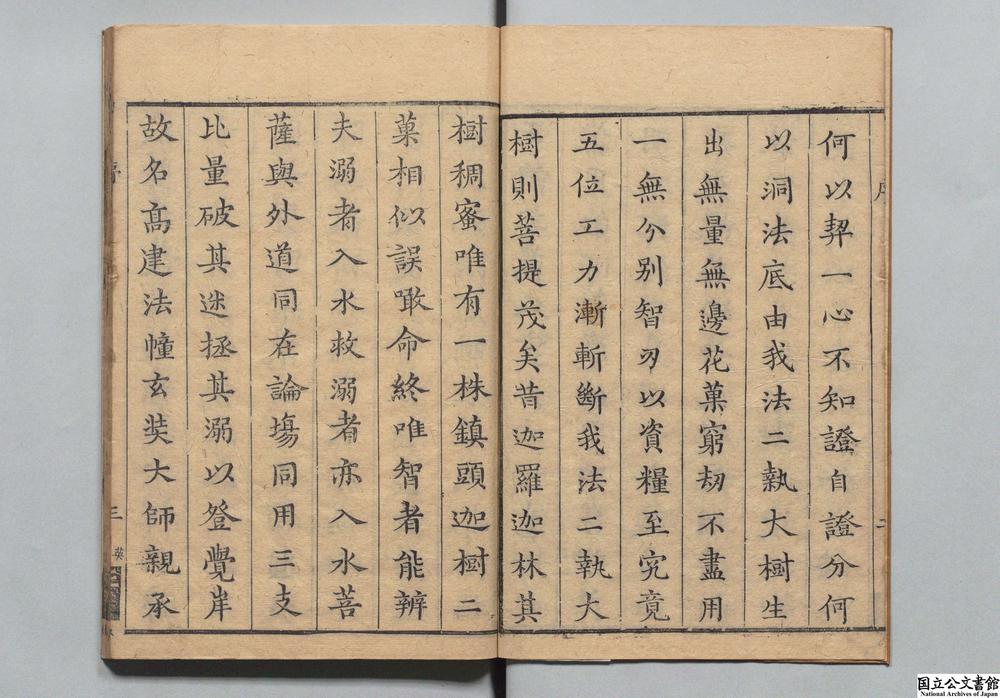 何以契一心不知證自證分何
以洞法底由我法二執大樹生
出無量無邊花菓窮劫不盡用
一無分別智刃以資糧至究竟
五位工力漸斬斷我法二執大
樹則菩提茂矣昔迦羅迦林其
樹稠蜜唯有一株鎮頭迦樹二
菓相似誤噉命終唯智者能辨
夫溺者入水救溺者亦入水菩
薩與外道同在論場同用三支
比量破其迷拯其溺以登覺岸
故名高建法幢玄奘大師親承
序
三
国立公文書館
National Archives of Japan